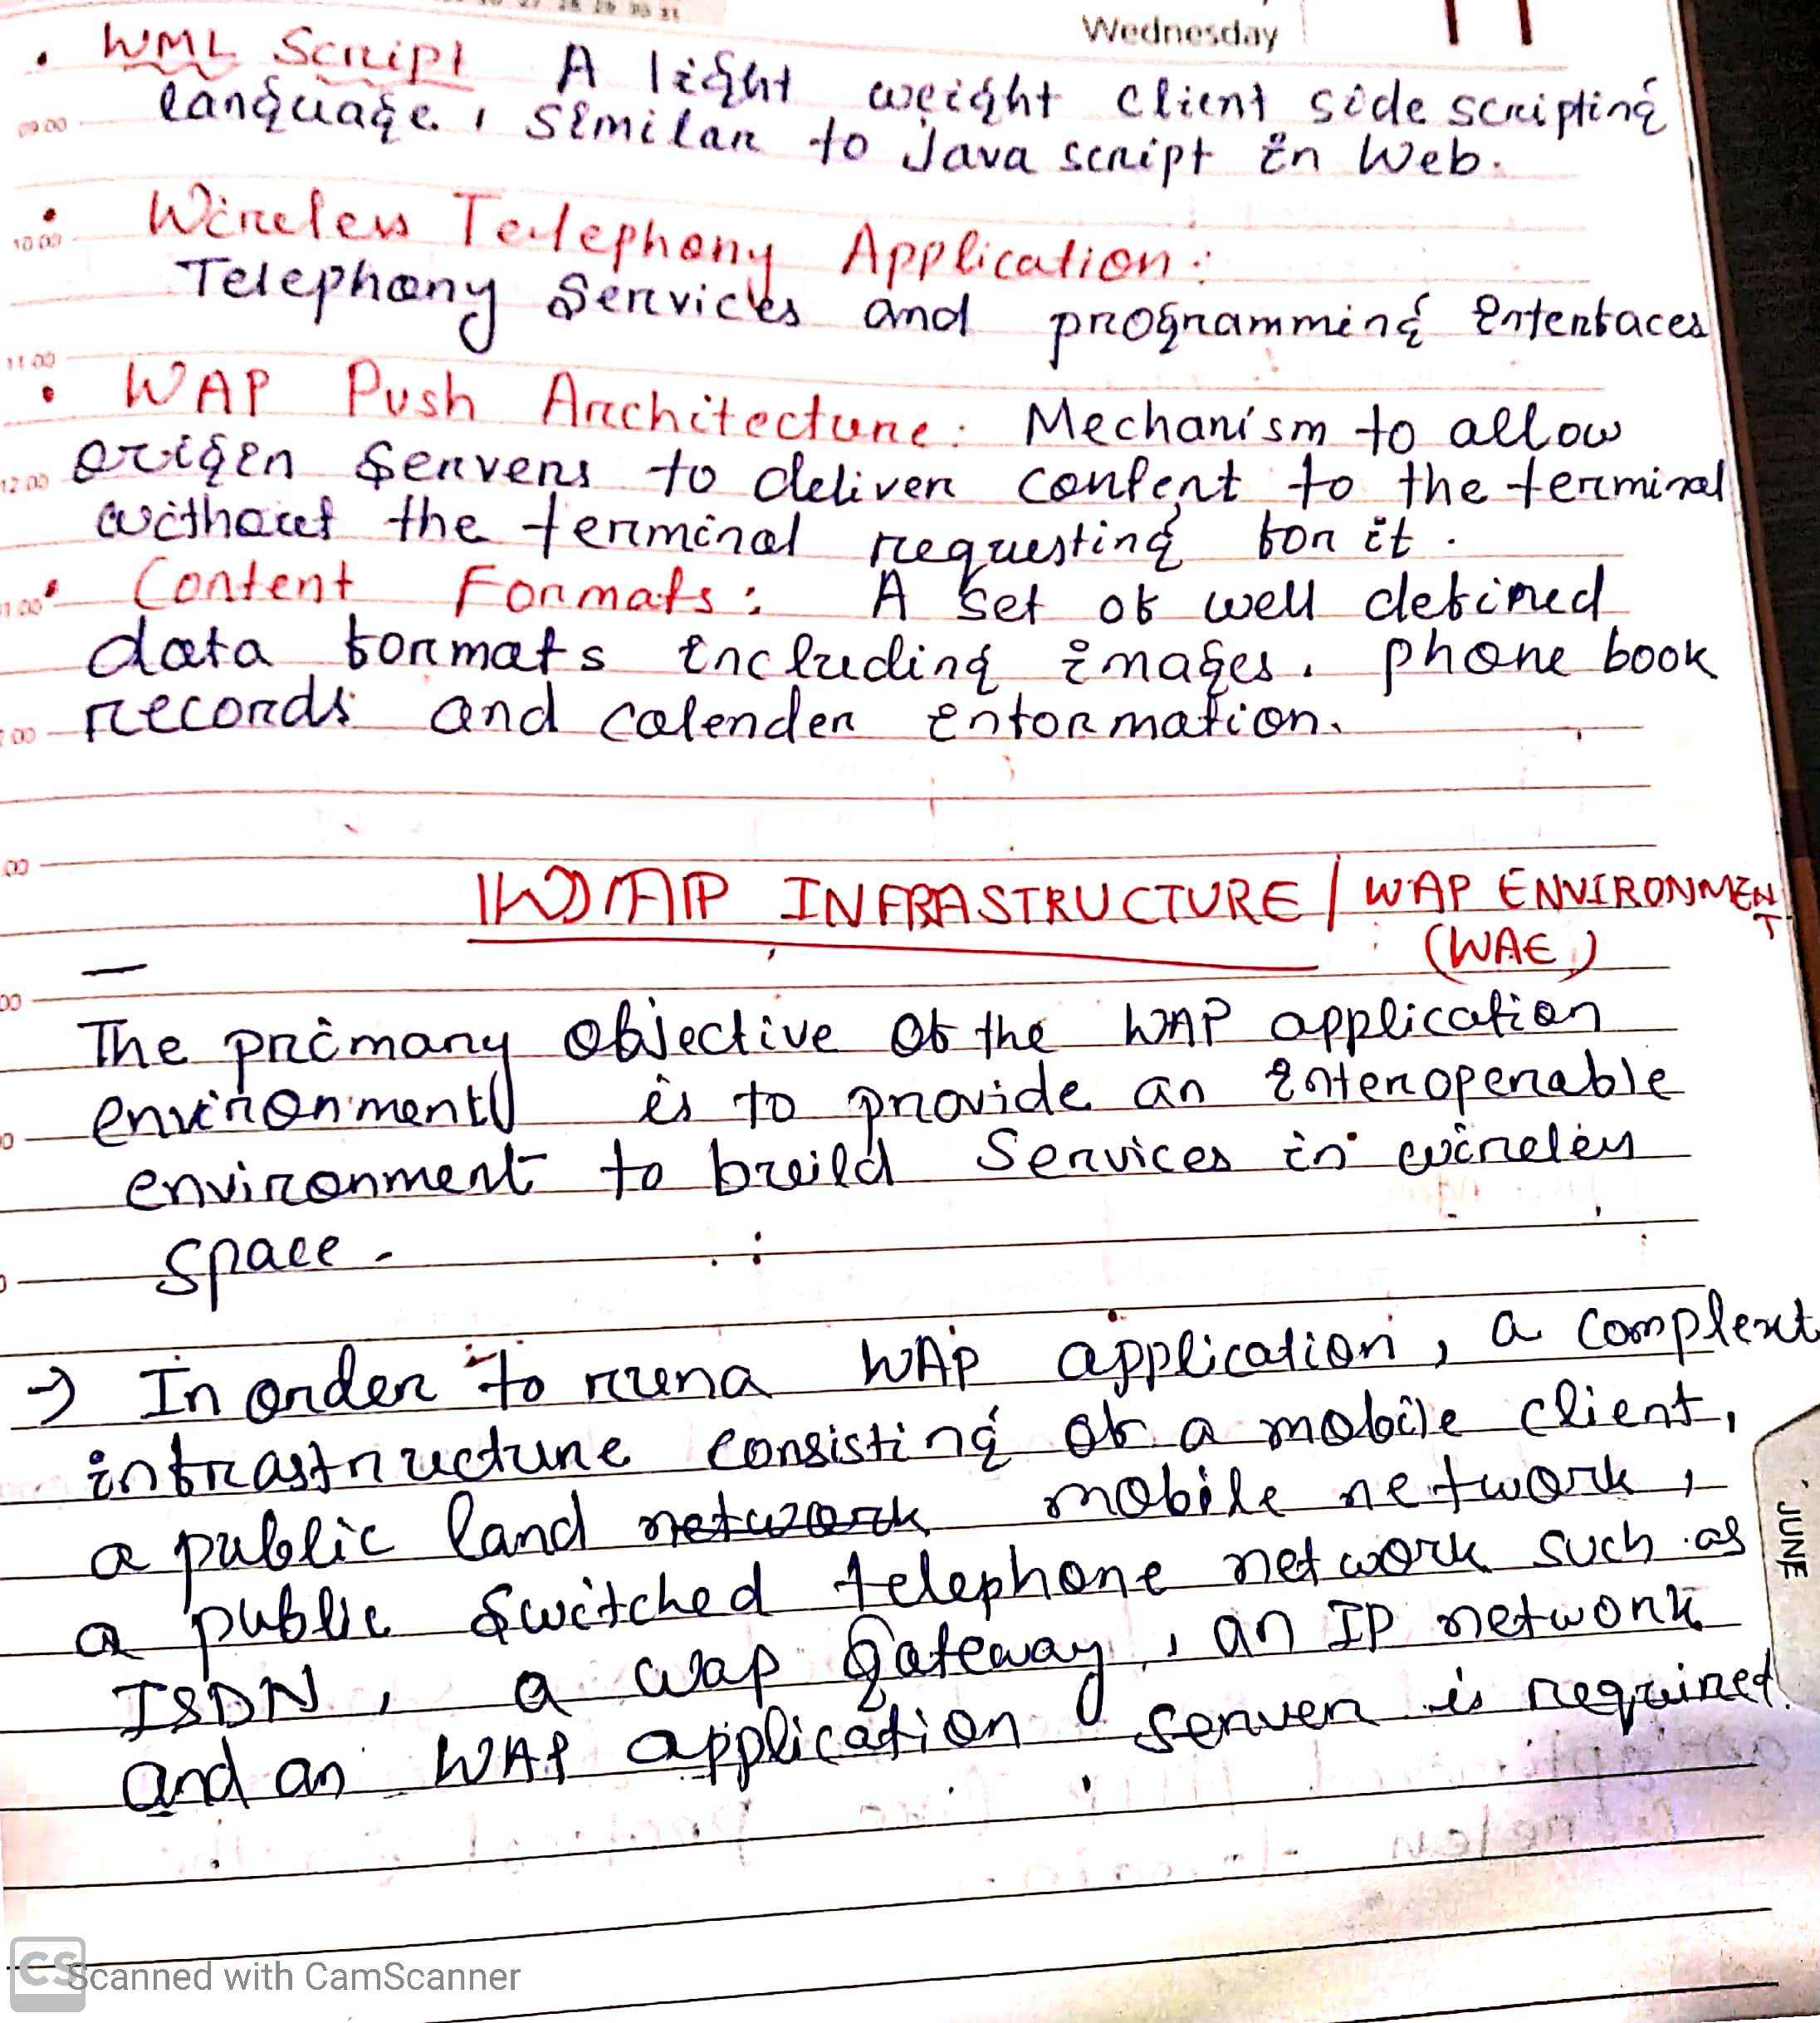 27 28 29 30 31
Wednesday 11
• WML Script A light weight client side scripting
09 00 language, similar to Java script in Web.
• Wireless Telephony Application:
10 00
Telephony Services and programming interfaces
11 00
• WAP Push Architecture: Mechanism to allow
12 00 origin servers to deliver content to the terminal
without the terminal requesting for it.
1 00 • Content Formats: A set of well defined
data formats including images, phone book
00 records and calender information.
00
WAP INFRASTRUCTURE / WAP ENVIRONMENT
(WAE)
00
The primary objective of the WAP application
environment is to provide an interoperable
environment to build services in wireless
space.
→ In order to run a WAP application, a complext
infrastructure consisting of a mobile client,
a public land network mobile network,
a public switched telephone network such as
JUNE
ISDN, a wap gateway, an IP network
and an WAP application server is required.
CS Scanned with CamScanner